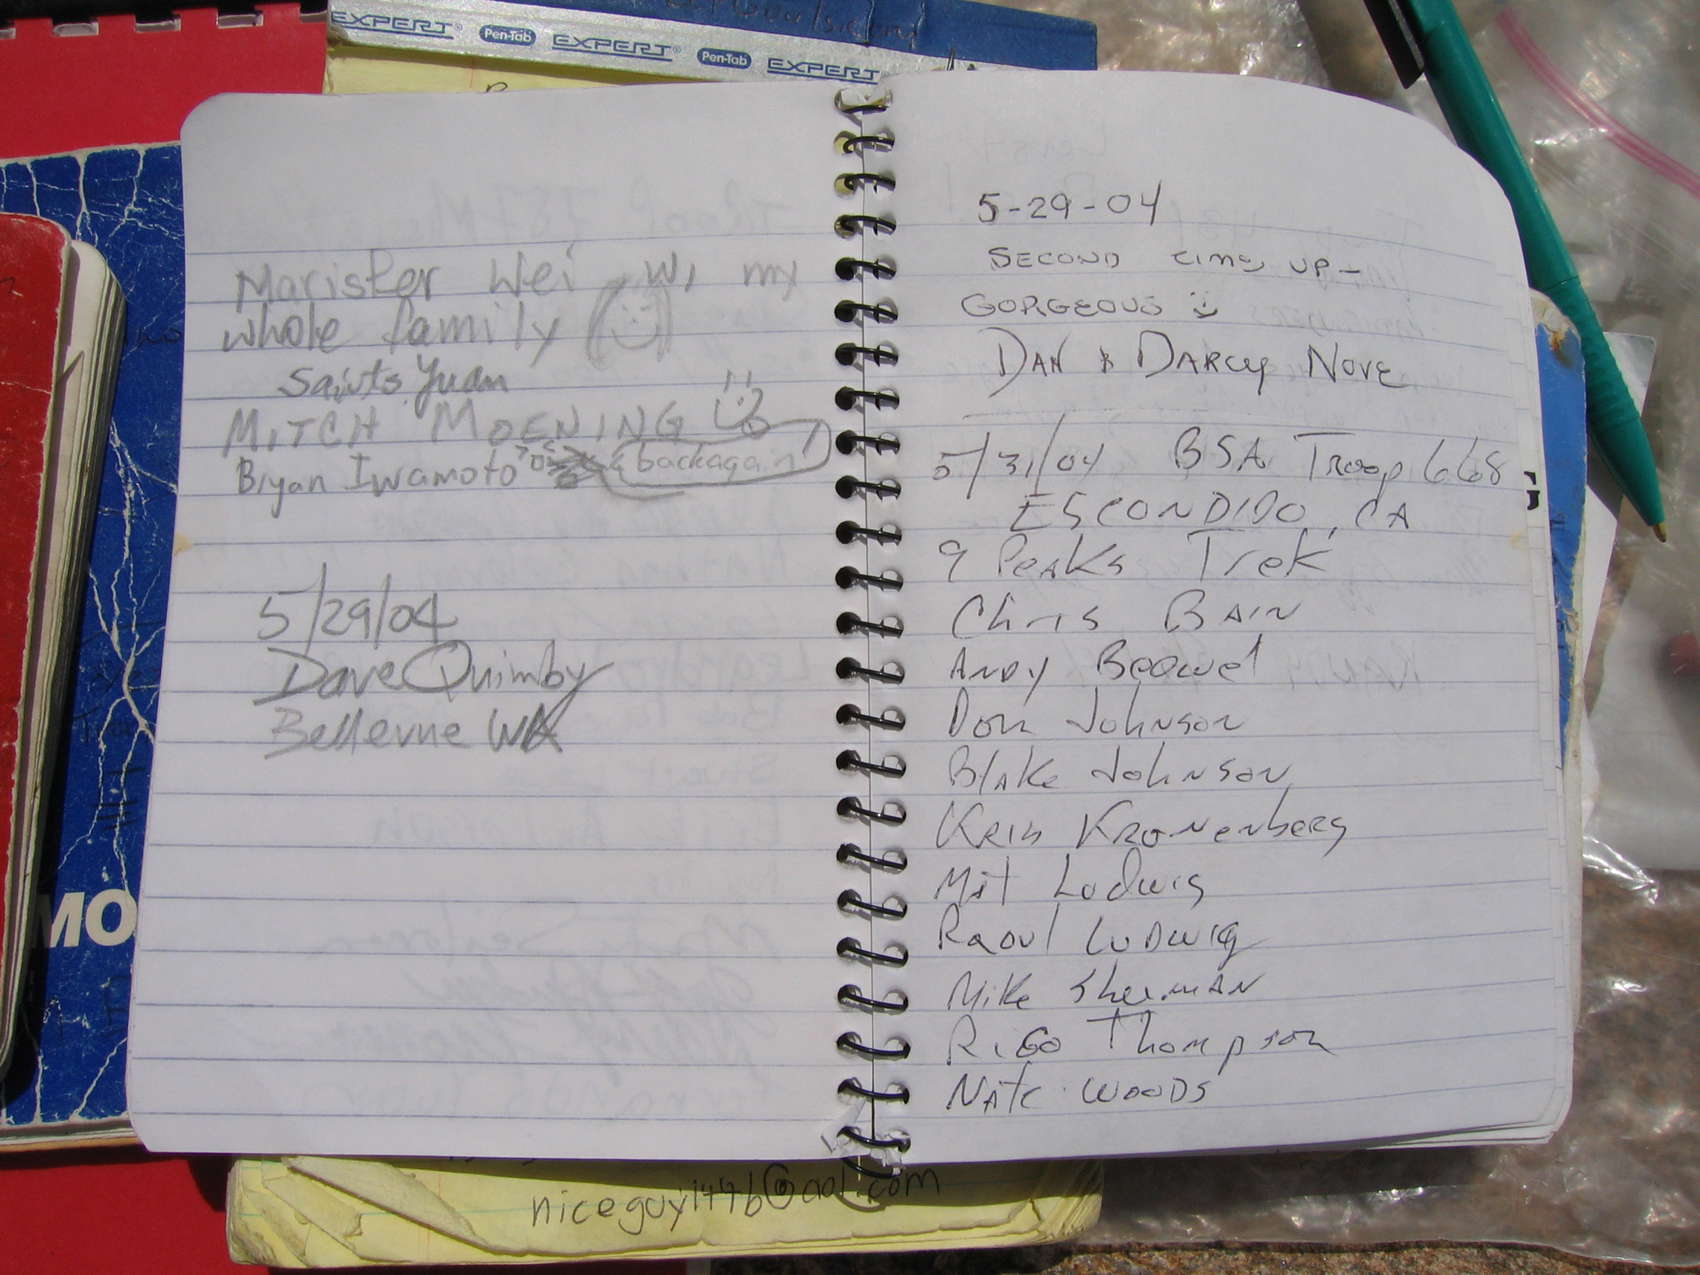 EXPERT Pen-Tab EXPERT Pen-Tab EXPERT
MO
Marister Wei w/ my
whole family
Saints Yuan
MITCH MOENING
Bryan Iwamoto back again!
5/29/04
Dave Quimby
Bellevue WA
5-29-04
SECOND TIME UP-
GORGEOUS
DAN & DARCY NOVE
5/31/04 BSA Troop 668
ESCONDIDO, CA
9 Peaks Trek
Chris BAIN
ANDY
Don Johnson
Blake Johnson
Kris Kronenberg
Ludwig
Raoul Ludwig
Mike Sherman
Thompson
Nate WOODS
@aol.com